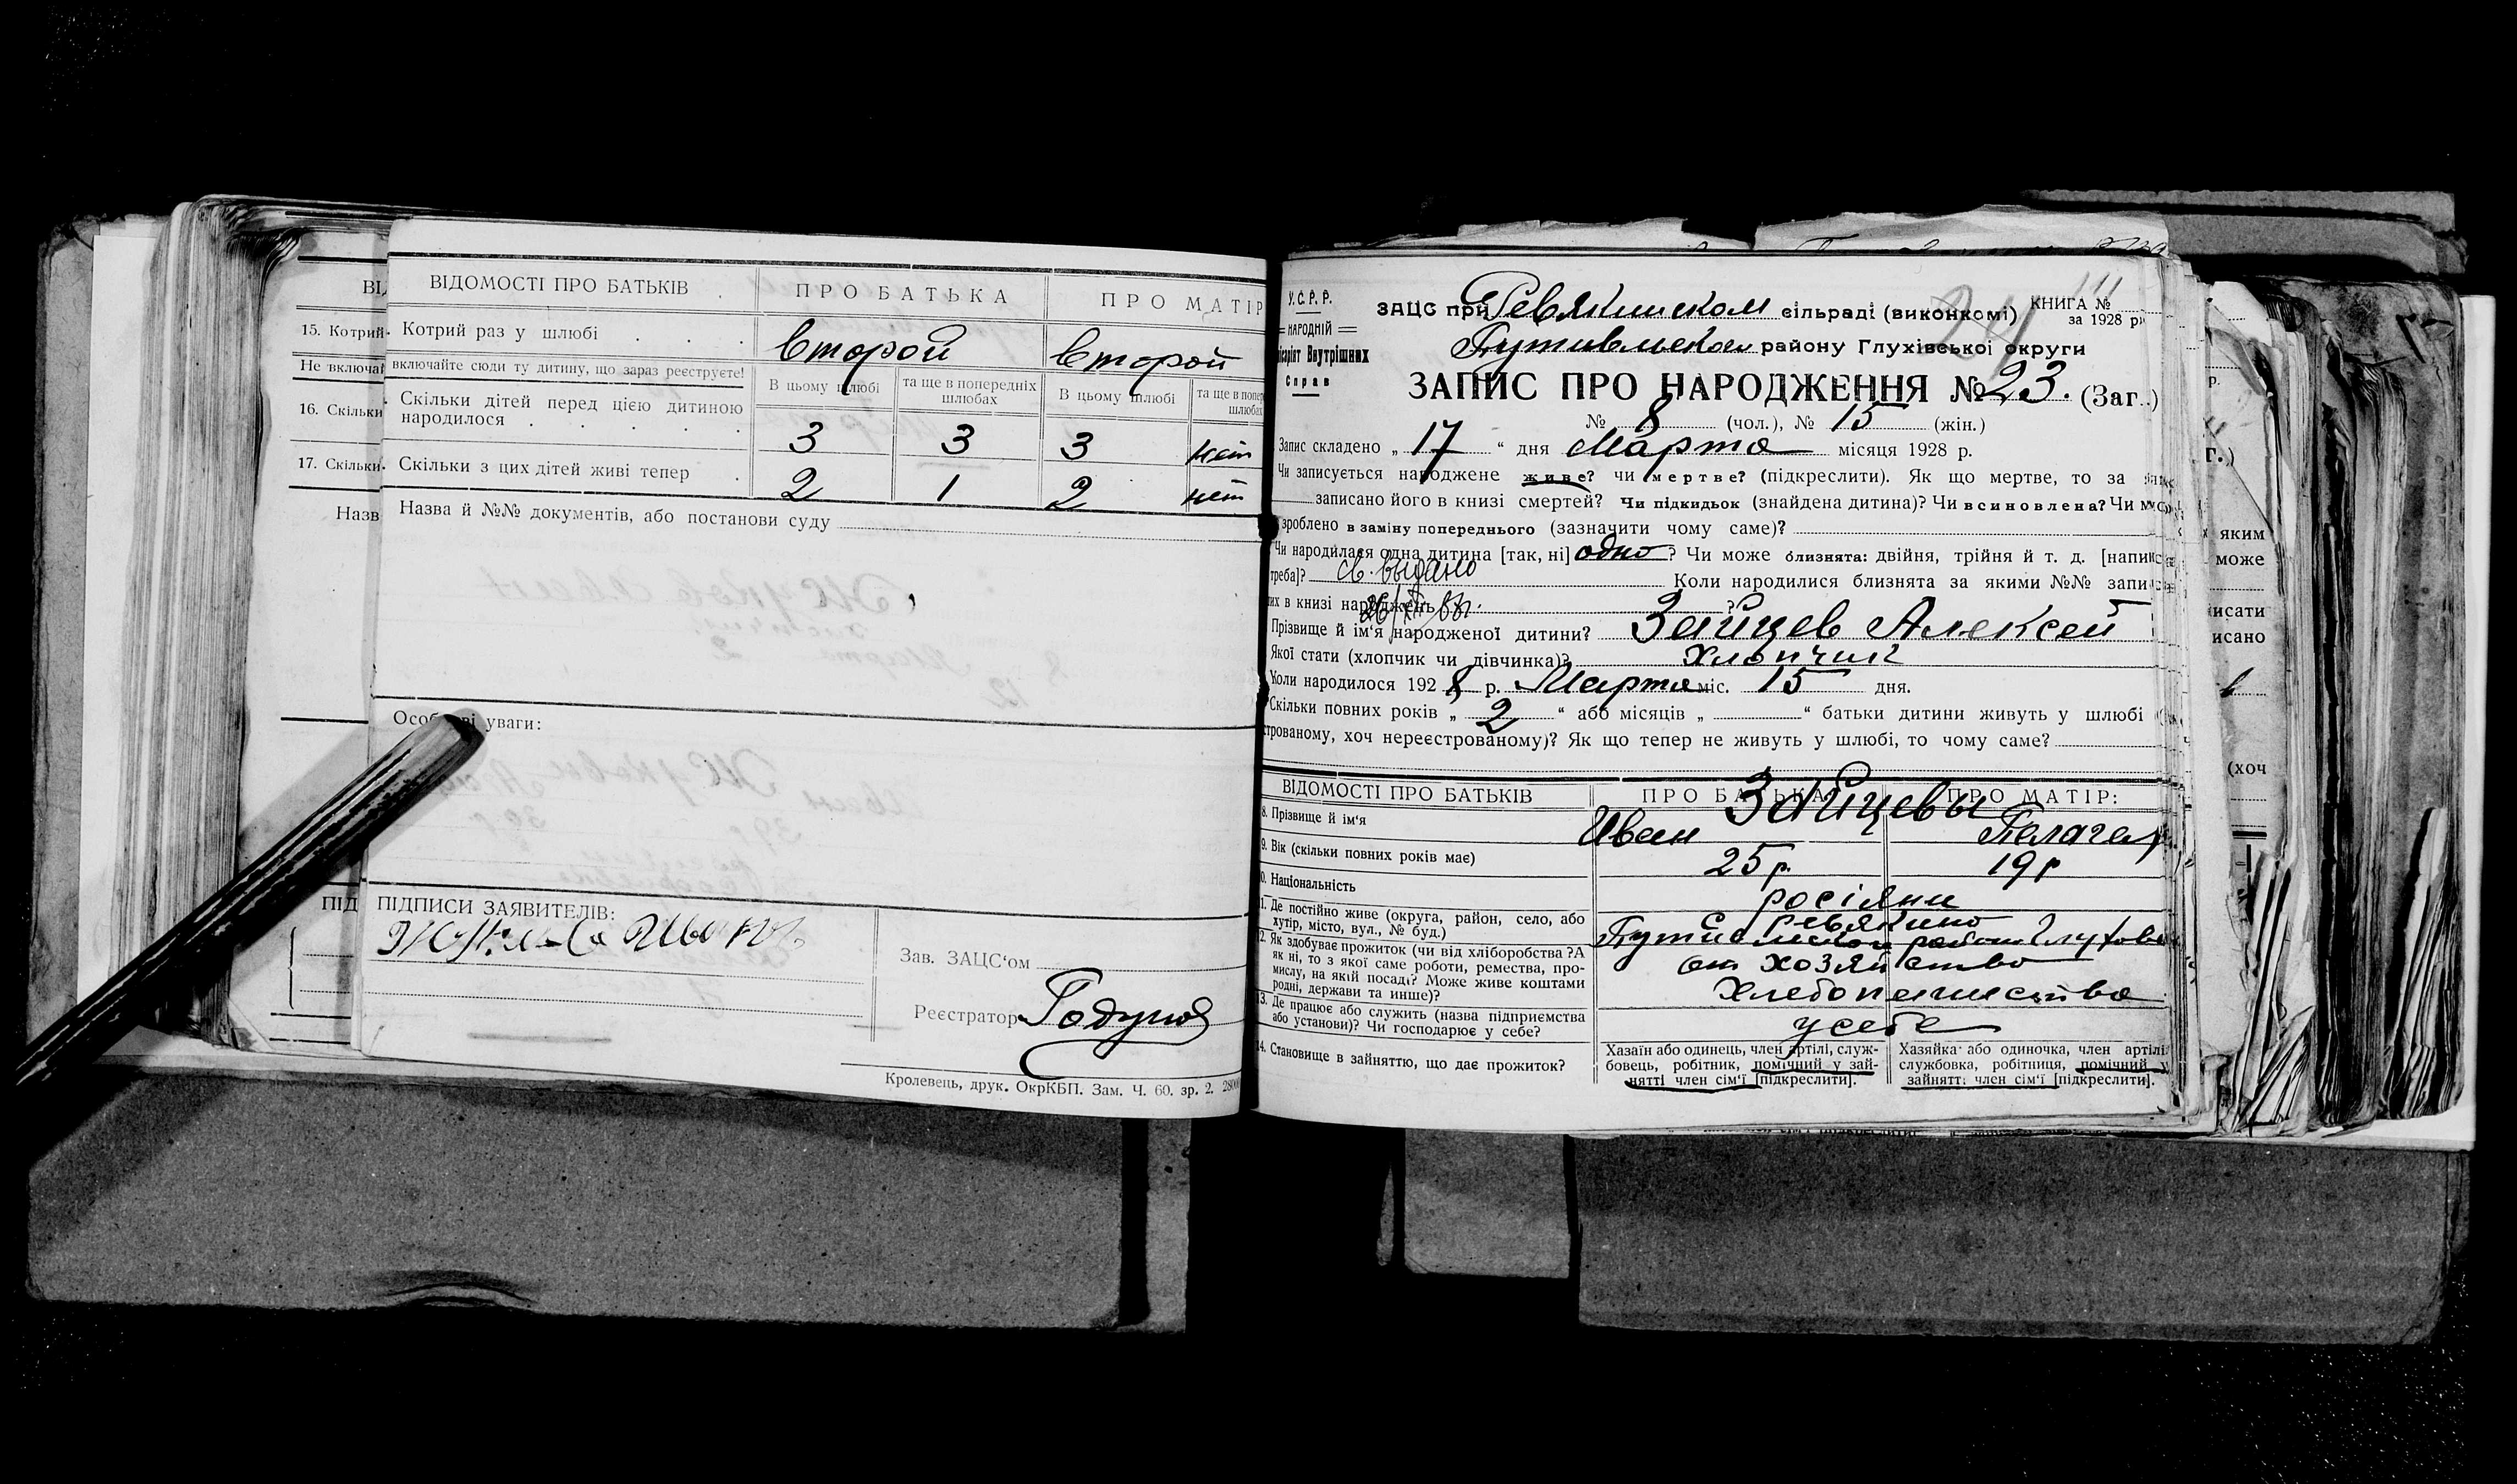 ВІДОМОСТІ ПРО БАТЬКІВ ПРО БАТЬКА ПРО МАТІР
15. Котрий
Котрий раз у шлюбі второй второй
Не включа
включайте сюди ту дитину, що зараз реєструєте!
В цьому шлюбі та ще в попередніх шлюбах В цьому шлюбі та ще в попер шлюбах
16. Скільки
Скільки дітей перед цією дитиною
народилося 3 3 3 нет
17. Скільки
Скільки з цих дітей живі тепер 2 1 2 нет
Назв
Назва й №№ документів, або постанови суду
Особові уваги:
ПІД
ПІДПИСИ ЗАЯВИТЕЛІВ:
Зав. ЗАЦС'ом
Реєстратор Годунов
Кролевець, друк. ОкрКБП. Зам. Ч. 60. зр. 2.
У.С.Р.Р.
НАРОДНІЙ
Внутрішних
Справ
ЗАЦС при Ревякинском сільраді (виконкомі)
КНИГА №
за 1928 р.
24
Путивльском району Глухівської округи
ЗАПИС ПРО НАРОДЖЕННЯ № 23. (Заг.)
№ 8 (чол.), № 15 (жін.)
Запис складено „ 17 “ дня Марта місяця 1928 р.
Чи записується народжене живе? чи мертве? (підкреслити). Як що мертве, то за
записано його в книзі смертей? Чи підкидьок (знайдена дитина)? Чи всиновлена? Чи
зроблено в заміну попереднього (зазначити чому саме)?
Чи народилася одна дитина [так, ні] одно? Чи може близнята: двійня, трійня й т. д. [напис
треба]? св. выдано Коли народилися близнята за якими №№ запи
их в книзі народжень ?
Прізвище й ім'я народженої дитини? Зайцев Алексей
Якої стати (хлопчик чи дівчинка)? хлопчик
Коли народилось 1928 р. Марта міс. 15 дня.
Скільки повних років „ 2 “ або місяців „ “ батьки дитини живуть у шлюбі
строваному, хоч нереєстрованому)? Як що тепер не живуть у шлюбі, то чому саме?
ВІДОМОСТІ ПРО БАТЬКІВ ПРО БАТЬКА: ПРО МАТІР:
Зайцевы
8. Прізвище й ім'я Иван Пелагея
9. Вік (скільки повних років має) 25 р. 19 р
0. Національність росіяни
1. Де постійно живе (округа, район, село, або
хутір, місто, вул., № буд.)
с. Ревякино
Путивльского района Глухов
2. Як здобуває прожиток (чи від хліборобства? А
як ні, то з якої саме роботи, ремества, про-
мислу, на якій посаді? Може живе коштами
родні, держави та инше)?
от хозяйства
хлебопашества
13. Де працює або служить (назва підприємства
або установи)? Чи господарює у себе?
у себе
14. Становище в зайняттю, що дає прожиток?
Хазаїн або одинець, член артілі, служ-
бовець, робітник, помічний у зай-
нятті член сім'ї [підкреслити].
Хазяйка або одиночка, член артілі
службовка, робітниця, помічний у
зайнятті член сім'ї [підкреслити].
яким
може
исати
исано
(хоч